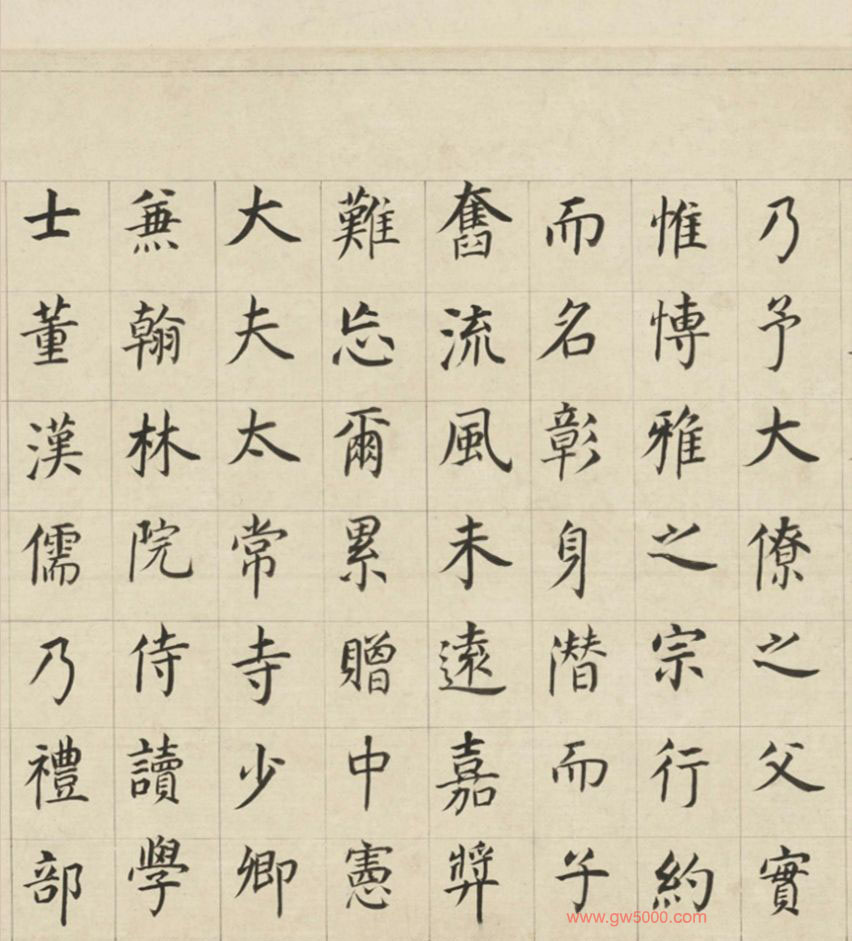 乃予大僚之父實
惟博雅之宗行約
而名彰身潛而子
奮流風未遠嘉奨
難忘爾累贈中憲
大夫太常寺少卿
兼翰林院侍讀學
士董漢儒乃禮部
www.gw5000.com